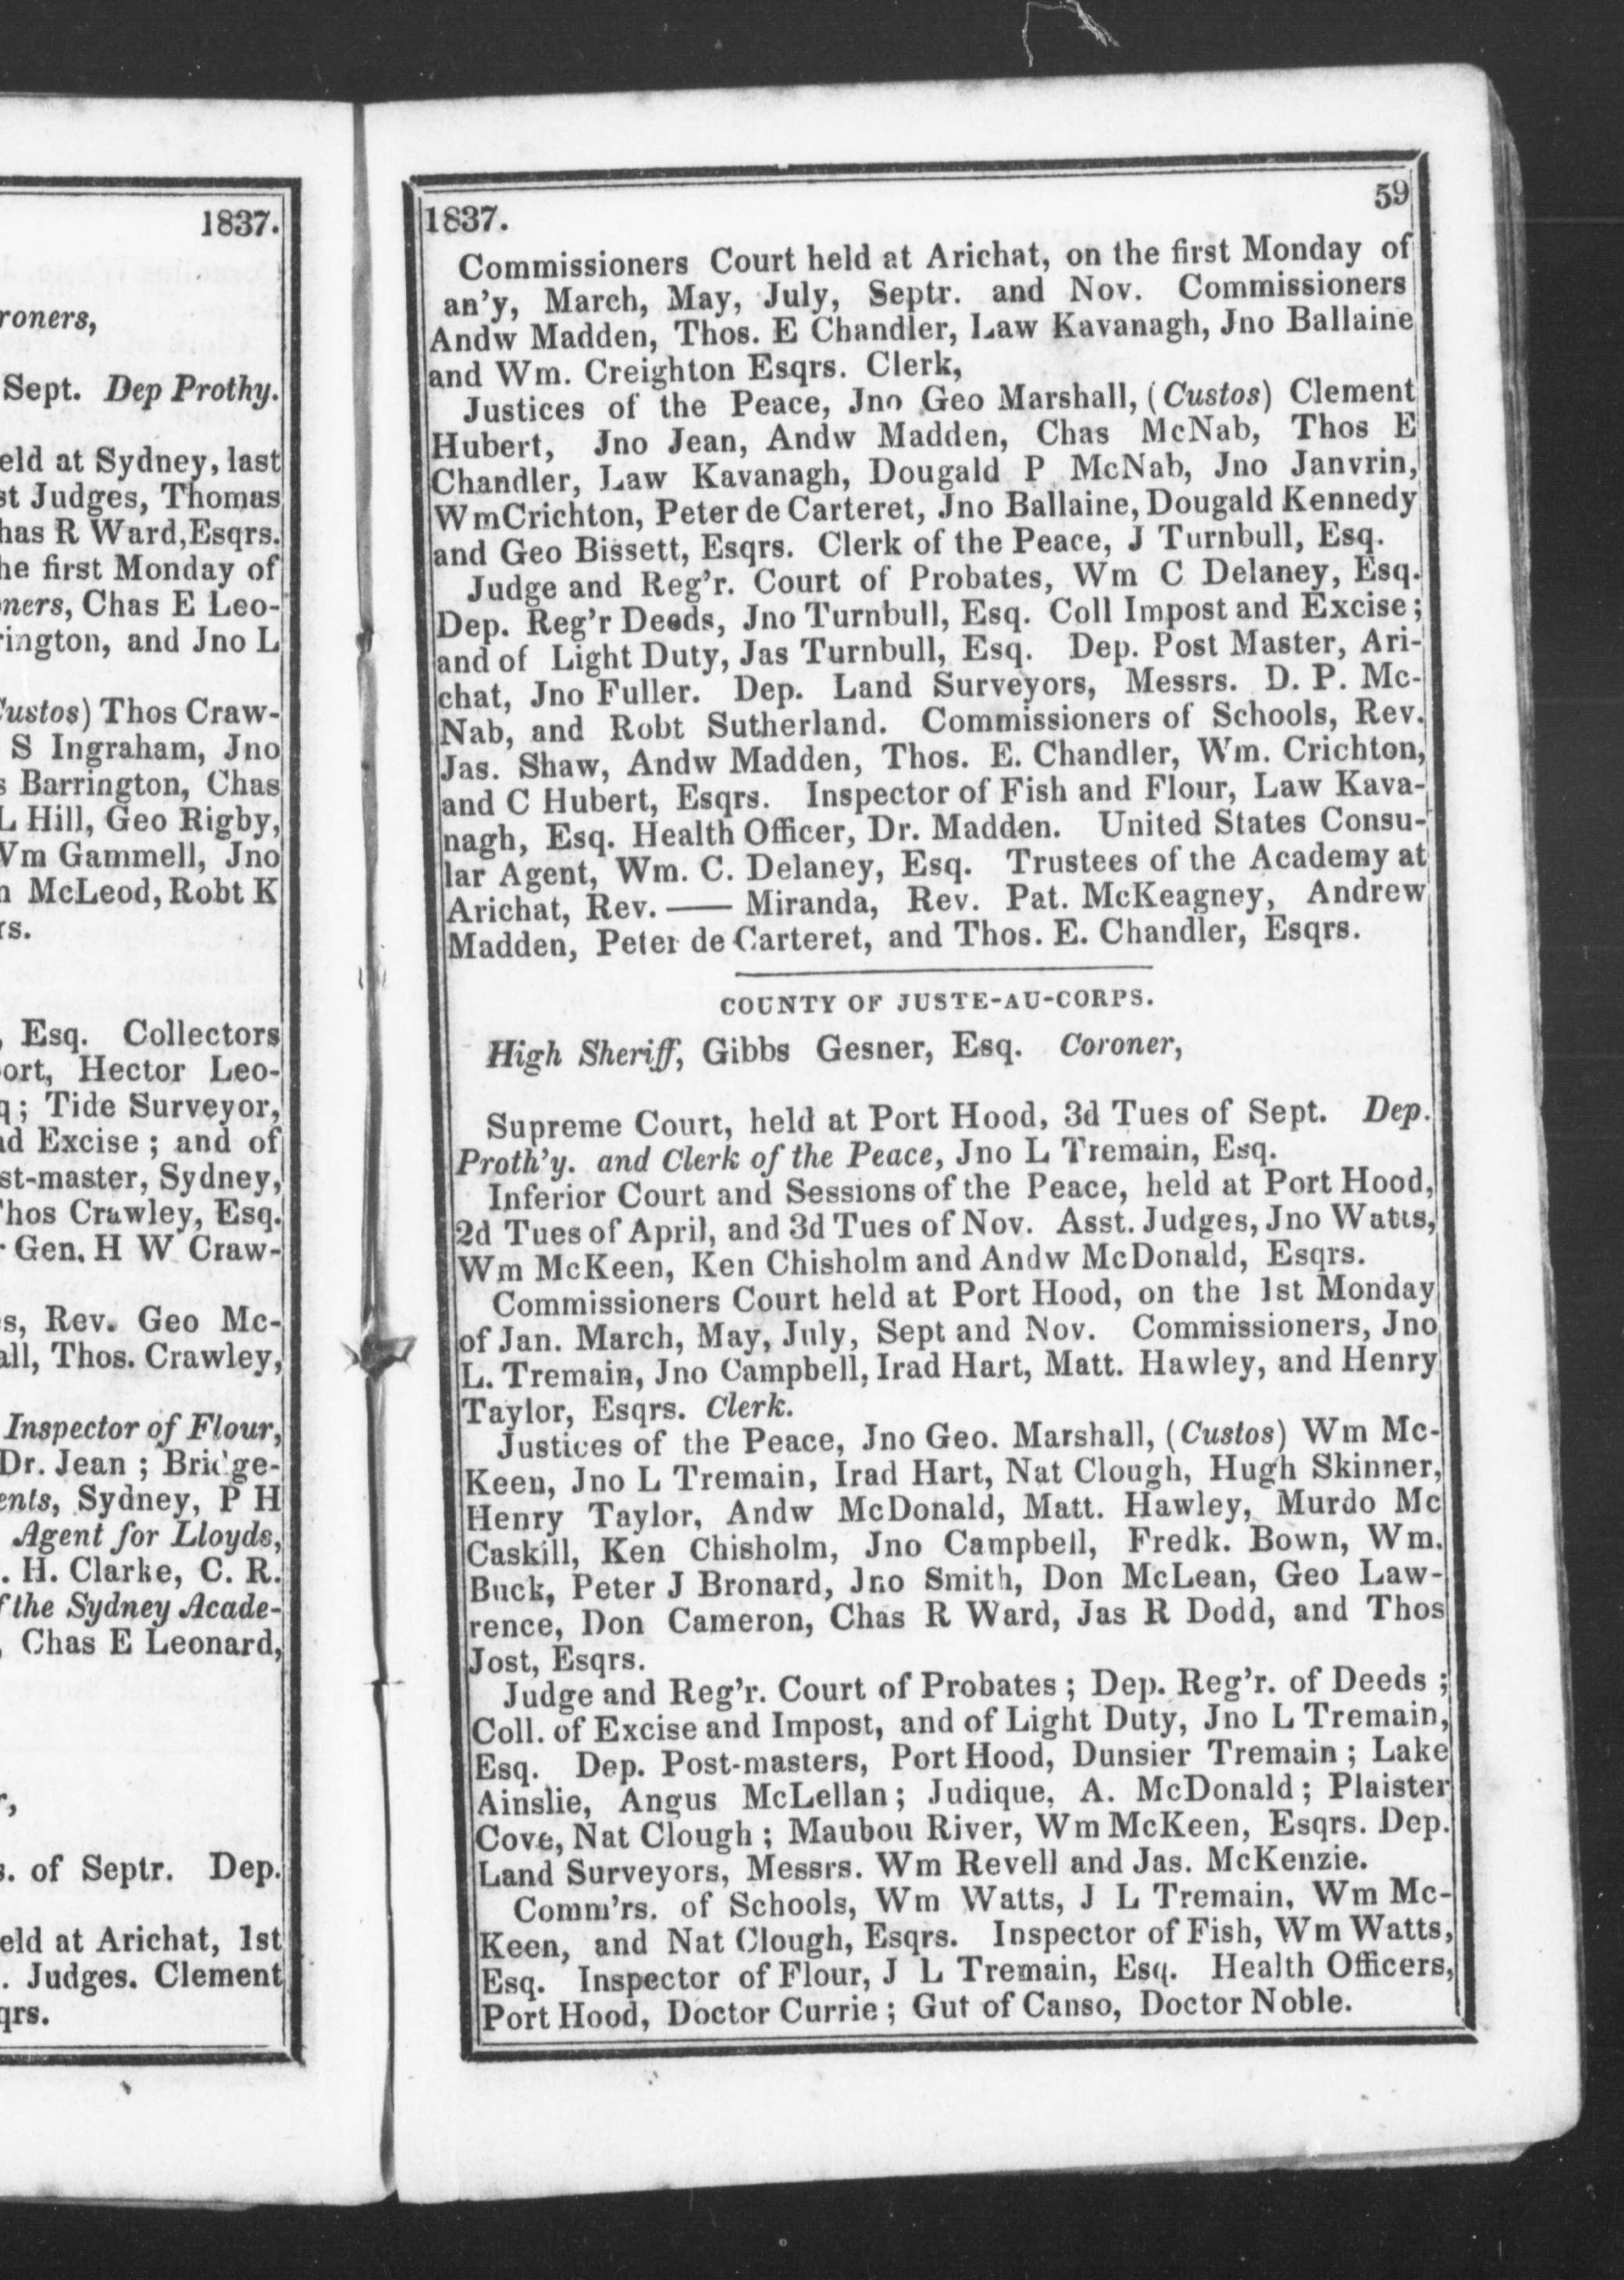 1837.
roners,
Sept. Dep Prothy.
eld at Sydney, last
st Judges, Thomas
has R Ward,Esqrs.
he first Monday of
ners, Chas E Leo-
rington, and Jno L
Custos) Thos Craw-
S Ingraham, Jno
s Barrington, Chas
L Hill, Geo Rigby,
Wm Gammell, Jno
n McLeod, Robt K
rs.
, Esq. Collectors
ort, Hector Leo-
q; Tide Surveyor,
nd Excise; and of
st-master, Sydney,
Thos Crawley, Esq.
r Gen. H W Craw-
s, Rev. Geo Mc-
all, Thos. Crawley,
Inspector of Flour,
Dr. Jean; Bridge-
ents, Sydney, P H
Agent for Lloyds,
. H. Clarke, C. R.
f the Sydney Acade-
, Chas E Leonard,
r,
s. of Septr. Dep.
eld at Arichat, 1st
. Judges. Clement
qrs.
1837. 59
Commissioners Court held at Arichat, on the first Monday of
an'y, March, May, July, Septr. and Nov. Commissioners
Andw Madden, Thos. E Chandler, Law Kavanagh, Jno Ballaine
and Wm. Creighton Esqrs. Clerk,
Justices of the Peace, Jno Geo Marshall, (Custos) Clement
Hubert, Jno Jean, Andw Madden, Chas McNab, Thos E
Chandler, Law Kavanagh, Dougald P McNab, Jno Janvrin,
WmCrichton, Peter de Carteret, Jno Ballaine, Dougald Kennedy
and Geo Bissett, Esqrs. Clerk of the Peace, J Turnbull, Esq.
Judge and Reg'r. Court of Probates, Wm C Delaney, Esq.
Dep. Reg'r Deeds, Jno Turnbull, Esq. Coll Impost and Excise;
and of Light Duty, Jas Turnbull, Esq. Dep. Post Master, Ari-
chat, Jno Fuller. Dep. Land Surveyors, Messrs. D. P. Mc-
Nab, and Robt Sutherland. Commissioners of Schools, Rev.
Jas. Shaw, Andw Madden, Thos. E. Chandler, Wm. Crichton,
and C Hubert, Esqrs. Inspector of Fish and Flour, Law Kava-
nagh, Esq. Health Officer, Dr. Madden. United States Consu-
lar Agent, Wm. C. Delaney, Esq. Trustees of the Academy at
Arichat, Rev. —— Miranda, Rev. Pat. McKeagney, Andrew
Madden, Peter de Carteret, and Thos. E. Chandler, Esqrs.
COUNTY OF JUSTE-AU-CORPS.
High Sheriff, Gibbs Gesner, Esq. Coroner,
Supreme Court, held at Port Hood, 3d Tues of Sept. Dep.
Proth'y. and Clerk of the Peace, Jno L Tremain, Esq.
Inferior Court and Sessions of the Peace, held at Port Hood,
2d Tues of April, and 3d Tues of Nov. Asst. Judges, Jno Watts,
Wm McKeen, Ken Chisholm and Andw McDonald, Esqrs.
Commissioners Court held at Port Hood, on the 1st Monday
of Jan. March, May, July, Sept and Nov. Commissioners, Jno
L. Tremain, Jno Campbell, Irad Hart, Matt. Hawley, and Henry
Taylor, Esqrs. Clerk.
Justices of the Peace, Jno Geo. Marshall, (Custos) Wm Mc-
Keen, Jno L Tremain, Irad Hart, Nat Clough, Hugh Skinner,
Henry Taylor, Andw McDonald, Matt. Hawley, Murdo Mc
Caskill, Ken Chisholm, Jno Campbell, Fredk. Bown, Wm.
Buck, Peter J Bronard, Jno Smith, Don McLean, Geo Law-
rence, Don Cameron, Chas R Ward, Jas R Dodd, and Thos
Jost, Esqrs.
Judge and Reg'r. Court of Probates; Dep. Reg'r. of Deeds;
Coll. of Excise and Impost, and of Light Duty, Jno L Tremain,
Esq. Dep. Post-masters, Port Hood, Dunsier Tremain; Lake
Ainslie, Angus McLellan; Judique, A. McDonald; Plaister
Cove, Nat Clough; Maubou River, Wm McKeen, Esqrs. Dep.
Land Surveyors, Messrs. Wm Revell and Jas. McKenzie.
Comm'rs. of Schools, Wm Watts, J L Tremain, Wm Mc-
Keen, and Nat Clough, Esqrs. Inspector of Fish, Wm Watts,
Esq. Inspector of Flour, J L Tremain, Esq. Health Officers,
Port Hood, Doctor Currie; Gut of Canso, Doctor Noble.